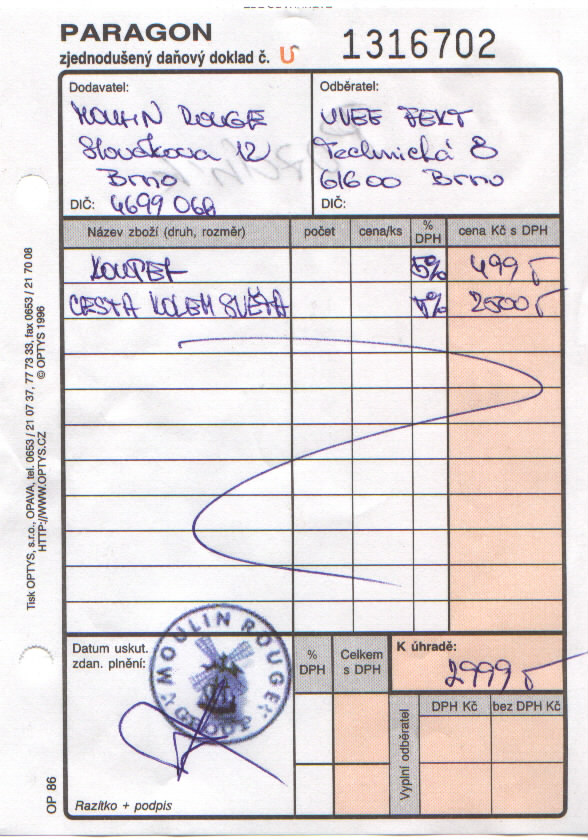 PARAGON
zjednodušený daňový doklad č. U 1316702
Dodavatel:
MOULIN ROUGE
Slovákova 12
Brno
DIČ: 4699 068
Odběratel:
UVEE FEKT
Technická 8
61600 Brno
DIČ:
Název zboží (druh, rozměr) počet cena/ks % DPH cena Kč s DPH
KOUPEL 5% 499,-
CESTA KOLEM SVĚTA 5% 2500,-
Datum uskut.
zdan. plnění:
MOULIN ROUGE
GROUP
Razítko + podpis
% DPH
Celkem s DPH
K úhradě:
2999,-
Vyplní odběratel
DPH Kč bez DPH Kč
Tisk OPTYS, s.r.o., OPAVA, tel. 0653 / 21 07 37, 77 73 33, fax 0653 / 21 70 08
HTTP://WWW.OPTYS.CZ © OPTYS 1996
OP 86